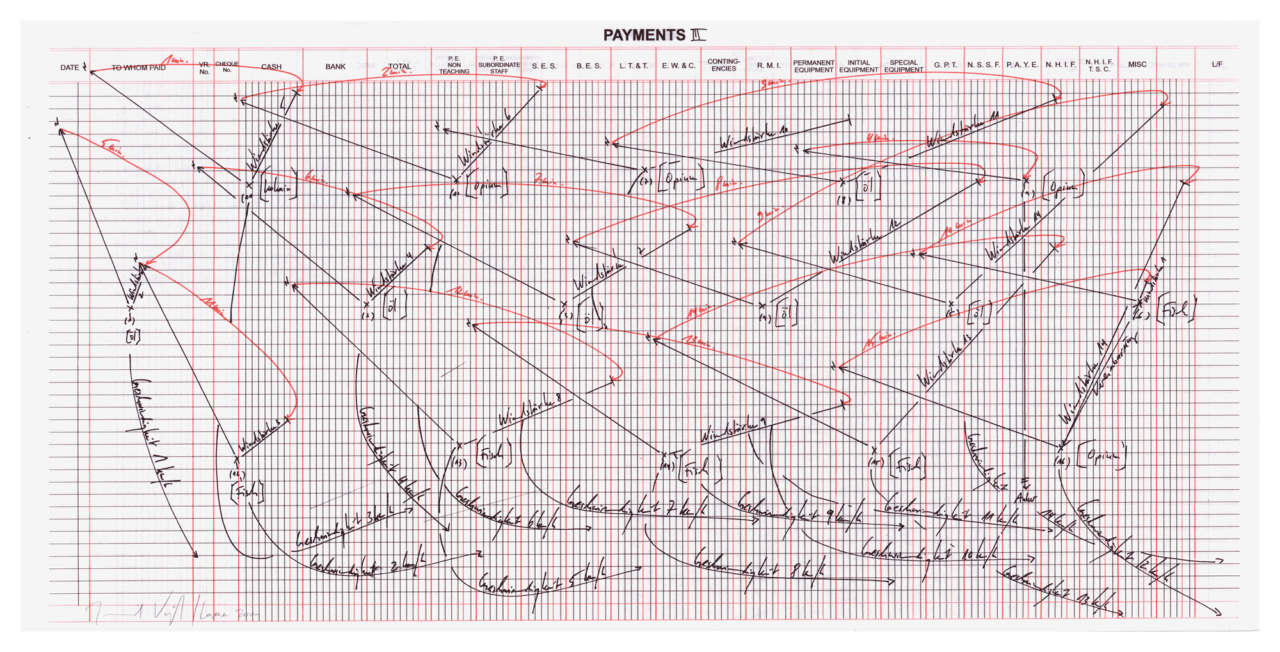 PAYMENTS III
DATE TO WHOM PAID VR. No. CHEQUE No. CASH BANK TOTAL P.E. NON TEACHING P.E. SUBORDINATE STAFF S.E.S. B.E.S. L.T.&T. E.W.&C. CONTING-ENCIES R.M.I. PERMANENT EQUIPMENT INITIAL EQUIPMENT SPECIAL EQUIPMENT G.P.T. N.S.S.F. P.A.Y.E. N.H.I.F. N.H.I.F. T.S.C. MISC L/F
1 min. 2 min. 3 min.
Windstärke 6 Windstärke 10 4 min. Windstärke 11
5 min.
6 min. 7 min. 8 min.
[Opium] [Opium] [öl] [Opium]
9 min. 10 min.
Windstärke 4 Windstärke 2 Windstärke 12 Windstärke 14
[öl] [öl] [öl] [öl] [Fisch]
[öl]
11 min. 12 min. 13 min. 14 min. 15 min.
Windstärke 13 Windstärke 14
Windstärke Windstärke 8 Windstärke 9
[Fisch] [Fisch] [Fisch] [Fisch] [Opium]
Geschwindigkeit 1 km/h Geschwindigkeit 4 km/h
Anker
Geschwindigkeit 3 km/h Geschwindigkeit 6 km/h Geschwindigkeit 7 km/h Geschwindigkeit 9 km/h Geschwindigkeit 11 km/h
Geschwindigkeit 2 km/h Geschwindigkeit 5 km/h Geschwindigkeit 8 km/h Geschwindigkeit 10 km/h Geschwindigkeit 12 km/h
Geschwindigkeit 13 km/h